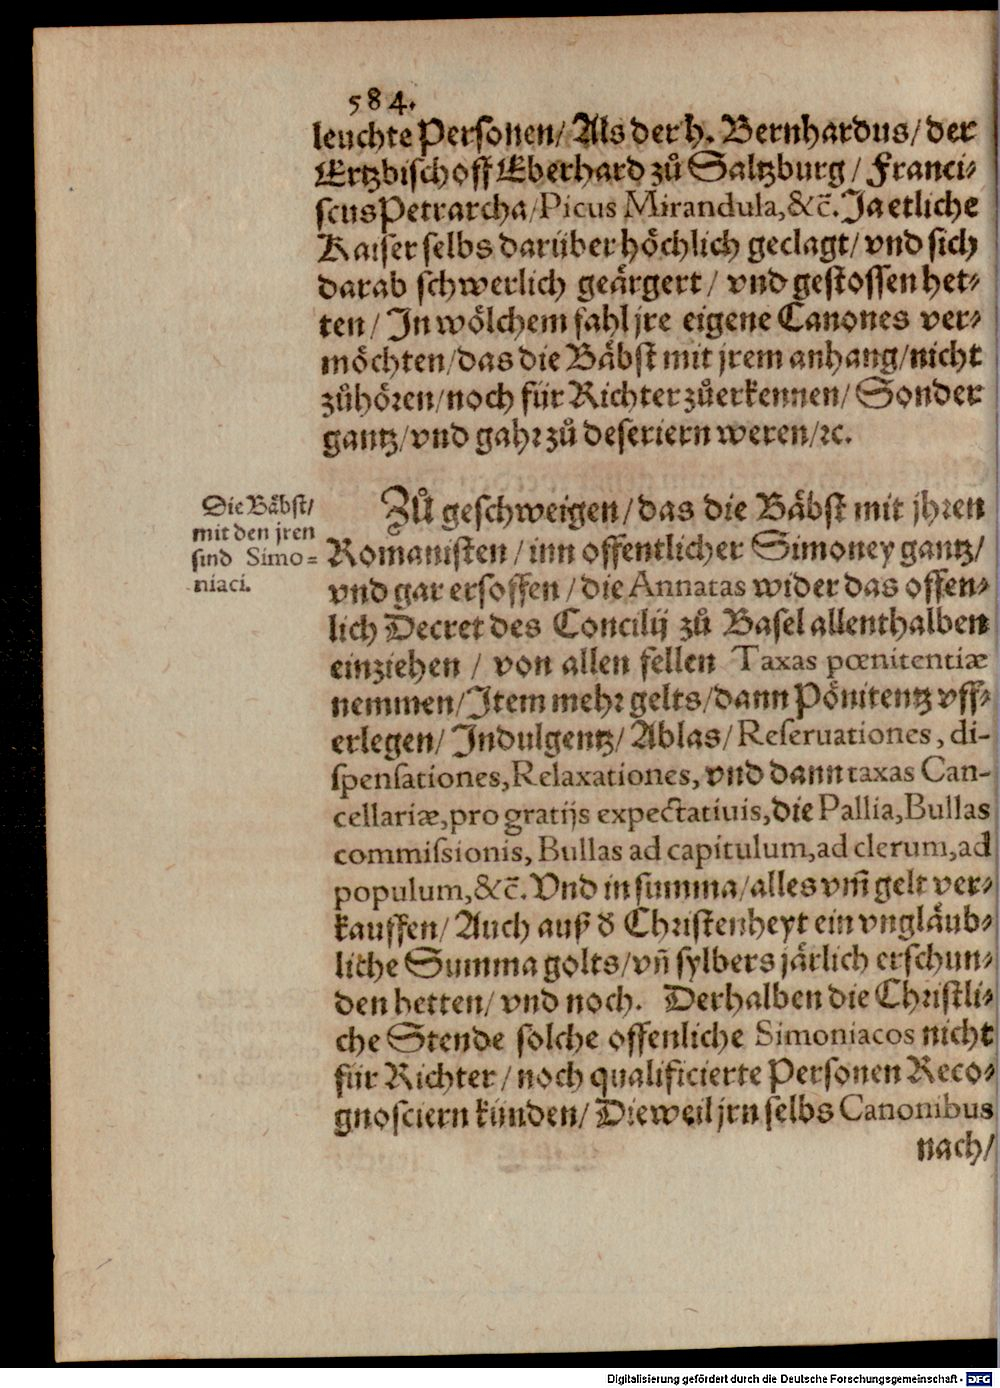 584.
leuchte Personen/ Als der h. Bernhardus/ der
Ertzbischoff Eberhard zů Saltzburg / Franci-
scus Petrarcha/ Picus Mirandula, &c̃. Ja etliche
Kaiser selbs darüber höchlich geclagt/ vnd sich
darab schwerlich geärgert / vnd gestossen het-
ten / In wölchem fahl jre eigene Canones ver-
möchten/ das die Bäbst mit jrem anhang/ nicht
zůhören/ noch für Richter zůerkennen/ Sonder
gantz/ vnd gahr zů deseriern weren/ ꝛc.
Die Bäbst/
mit den jren
sind Simo-
niaci.
Zů geschweigen/ das die Bäbst mit jhren
Romanisten / inn offentlicher Simoney gantz/
vnd gar ersoffen / die Annatas wider das offen-
lich Decret des Concilij zů Basel allenthalben
einziehen / von allen fellen Taxas pœnitentiæ
nemmen/ Item mehr gelts/ dann Pönitentz vff-
erlegen/ Indulgentz/ Ablas/ Reseruationes, di-
spensationes, Relaxationes, vnd dann taxas Can-
cellariæ, pro gratijs expectatiuis, die Pallia, Bullas
commissionis, Bullas ad capitulum, ad clerum, ad
populum, &c̃. Vnd in summa/ alles vm̃ gelt ver-
kauffen/ Auch auß d Christenheyt ein vngläub-
liche Summa golts/ vñ sylbers järlich erschun-
den hetten/ vnd noch. Derhalben die Christli-
che Stende solche offenliche Simoniacos nicht
für Richter / noch qualificierte Personen Reco-
gnosciern künden/ Dieweil jrn selbs Canonibus
nach/
Digitalisierung gefördert durch die Deutsche Forschungsgemeinschaft - DFG